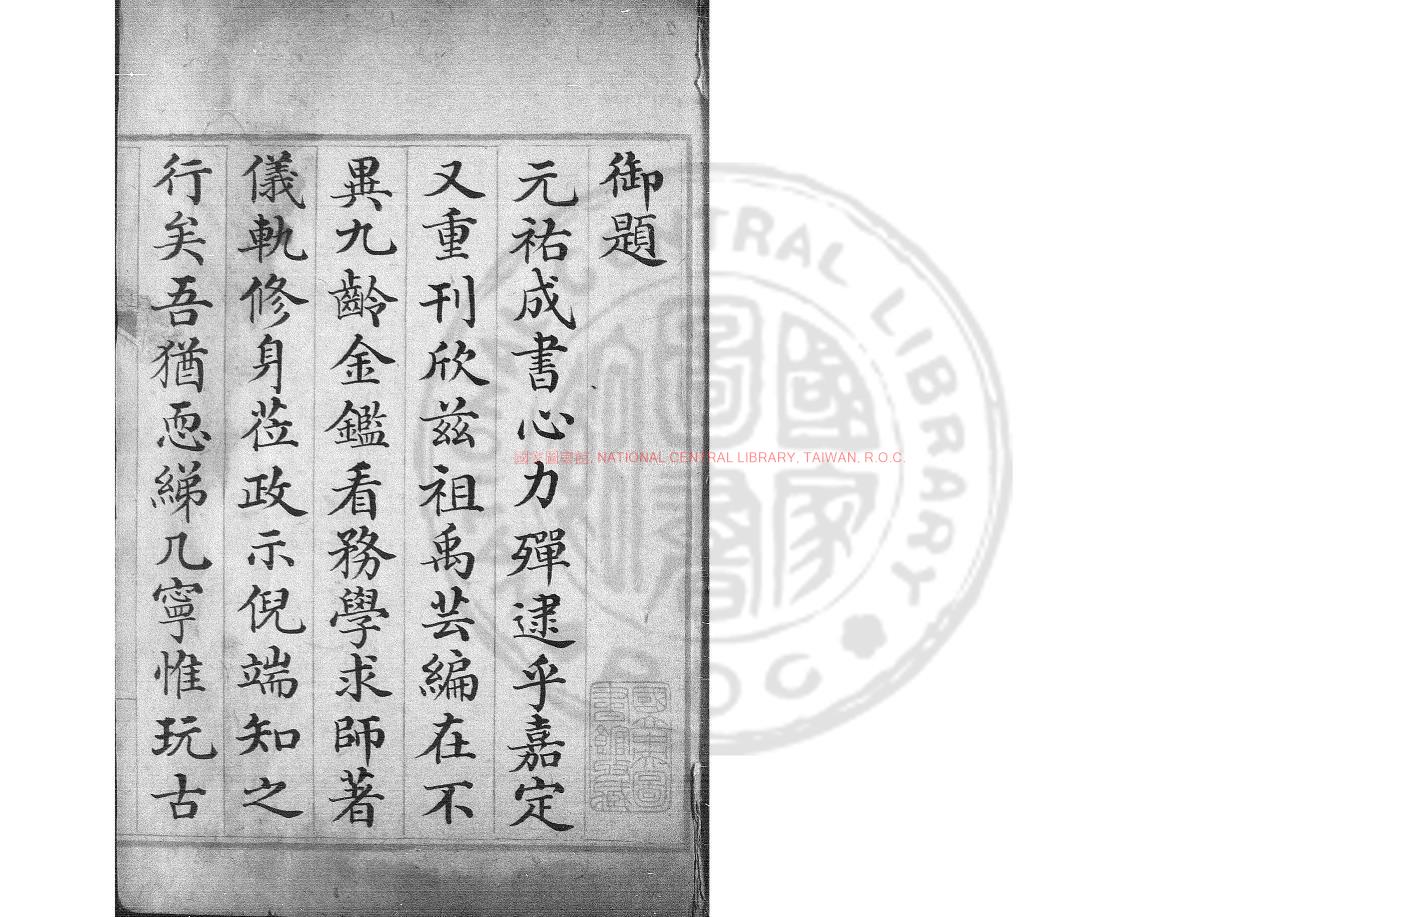 御題
元祐成書心力殫逮乎嘉定
又重刊欣兹祖禹芸編在不
異九齡金鑑看務學求師著
儀軌修身莅政示倪端知之
行矣吾猶恧綈几寧惟玩古
國家圖書館藏
國家圖書館, NATIONAL CENTRAL LIBRARY, TAIWAN, R.O.C.
NATIONAL CENTRAL LIBRARY
R.O.C.
國家圖書